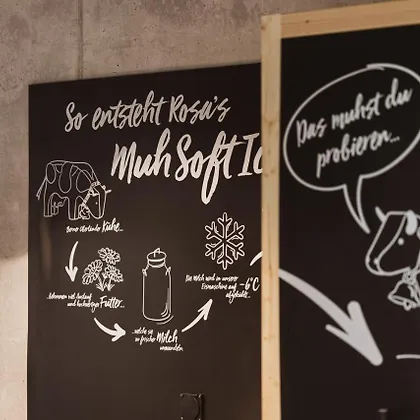 So entsteht Rosa's
Muh Soft Ic
Das muhst du
probieren...
Berner Oberländer Kühe...
...bekommen viel Auslauf
und hochwertiges Futter...
...welche sie
zu frischer Milch
verwandeln.
Die Milch wird in unserer
Eismaschine auf -6°C
abgekühlt...